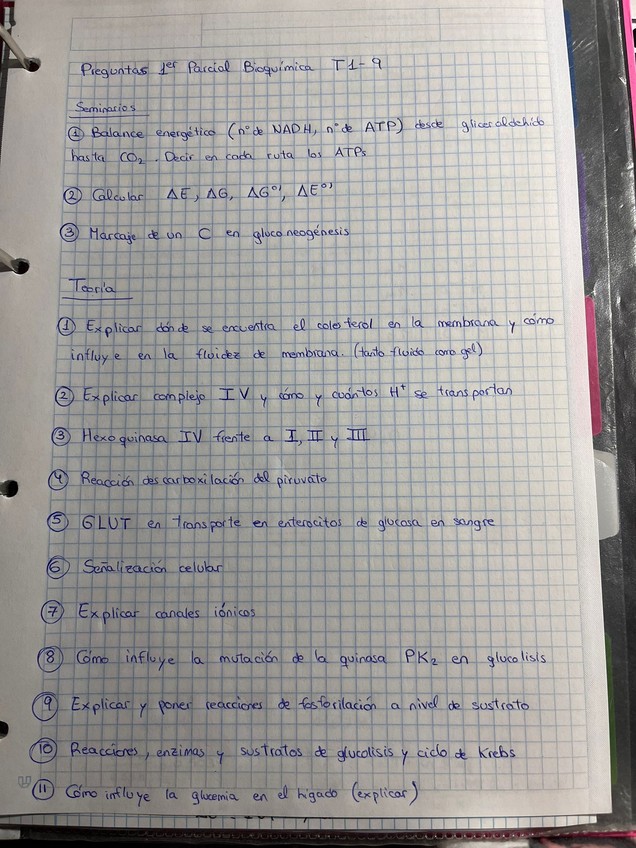 Preguntas 1er Parcial Bioquímica T1-9
Seminarios
① Balance energético (nº de NADH, nº de ATP) desde gliceraldehído
hasta CO₂. Decir en cada ruta los ATPs
② Calcular ΔE, ΔG, ΔG°', ΔE°'
③ Marcaje de un C en gluconeogénesis
Teoría
① Explicar dónde se encuentra el colesterol en la membrana y cómo
influye en la fluidez de membrana. (tanto fluido como gel)
② Explicar complejo IV y cómo y cuántos H⁺ se transportan
③ Hexoquinasa IV frente a I, II y III
④ Reacción descarboxilación del piruvato
⑤ GLUT en transporte en enterocitos de glucosa en sangre
⑥ Señalización celular
⑦ Explicar canales iónicos
⑧ Cómo influye la mutación de la quinasa PK₂ en glucolisis
⑨ Explicar y poner reacciones de fosforilación a nivel de sustrato
⑩ Reacciones, enzimas y sustratos de glucolisis y ciclo de Krebs
⑪ Cómo influye la glucemia en el hígado (explicar)